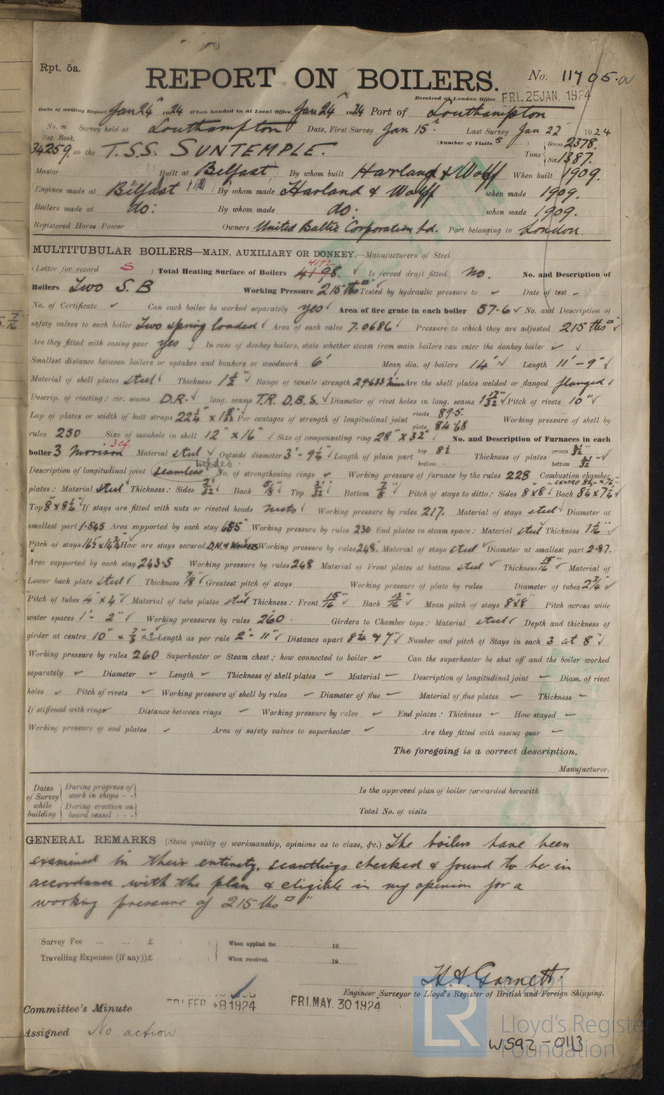 Rpt. 5a.
REPORT ON BOILERS.
No. 11705
Received at London Office FRI. 25 JAN. 1924
Date of writing Report Jan 24th 1924 When handed in at Local Office Jan 24th 1924 Port of Southampton
No. in Reg. Book. Survey held at Southampton Date, First Survey Jan 15th Last Survey Jan 22nd 1924
34259 on the T.S.S. SUNTEMPLE. (Number of Visits 5) Tons Gross 2378. Net 1387.
Master Built at Belfast By whom built Harland & Wolff When built 1909.
Engines made at Belfast By whom made Harland & Wolff when made 1909.
Boilers made at do: By whom made do. when made 1909.
Registered Horse Power Owners United Baltic Corporation Ltd. Port belonging to London.
MULTITUBULAR BOILERS—MAIN, AUXILIARY OR DONKEY.—Manufacturers of Steel
(Letter for record S) Total Heating Surface of Boilers Is forced draft fitted no. No. and Description of
Boilers Two S.B Working Pressure 215 lbs Tested by hydraulic pressure to Date of test
No. of Certificate Can each boiler be worked separately yes Area of fire grate in each boiler 57.6 No. and Description of
safety valves to each boiler Two spring loaded Area of each valve 7.0686 Pressure to which they are adjusted 215 lbs
Are they fitted with easing gear yes In case of donkey boilers, state whether steam from main boilers can enter the donkey boiler
Smallest distance between boilers or uptakes and bunkers or woodwork 6" Mean dia. of boilers 14' Length 11'-9"
Material of shell plates steel Thickness Range of tensile strength Are the shell plates welded or flanged flanged
Descrip. of riveting: cir. seams D.R. long. seams T.R. D.B.S. Diameter of rivet holes in long. seams Pitch of rivets 10"
Lap of plates or width of butt straps Per centages of strength of longitudinal joint rivets 89.5 plate 84.68 Working pressure of shell by
rules 230 Size of manhole in shell 12" x 16" Size of compensating ring 28" x 32" No. and Description of Furnaces in each
boiler 3 Morrison Material steel Outside diameter Length of plain part top bottom Thickness of plates crown bottom
Description of longitudinal joint seamless No. of strengthening rings Working pressure of furnace by the rules 228 Combustion chamber
plates: Material steel Thickness: Sides Back Top Bottom 7/8 Pitch of stays to ditto: Sides 8 x 8 Back
Top If stays are fitted with nuts or riveted heads nuts Working pressure by rules 217. Material of stays steel Diameter at
smallest part Area supported by each stay Working pressure by rules 230 End plates in steam space: Material steel Thickness
Pitch of stays How are stays secured Working pressure by rules 248. Material of stays steel Diameter at smallest part 2.87.
Area supported by each stay 243.5 Working pressure by rules 248 Material of Front plates at bottom steel Thickness 15/16 Material of
Lower back plate steel Thickness 7/8 Greatest pitch of stays Working pressure of plate by rules Diameter of tubes
Pitch of tubes 4" x 4" Material of tube plates steel Thickness: Front 15/16 Back Mean pitch of stays 8" x 8" Pitch across wide
water spaces 1'- 2" Working pressures by rules 260. Girders to Chamber tops: Material steel Depth and thickness of
girder at centre Length as per rule 2'- 11" Distance apart Number and pitch of Stays in each 3 at 8"
Working pressure by rules 260 Superheater or Steam chest; how connected to boiler Can the superheater be shut off and the boiler worked
separately Diameter Length Thickness of shell plates Material Description of longitudinal joint Diam. of rivet
holes Pitch of rivets Working pressure of shell by rules Diameter of flue Material of flue plates Thickness
If stiffened with rings Distance between rings Working pressure by rules End plates: Thickness How stayed
Working pressure of end plates Area of safety valves to superheater Are they fitted with easing gear
The foregoing is a correct description,
Manufacturer.
Dates of Survey while building
During progress of work in shops - -
During erection on board vessel - -
Is the approved plan of boiler forwarded herewith
Total No. of visits
GENERAL REMARKS (State quality of workmanship, opinions as to class, &c.) The boilers have been
examined in their entirety, scantlings checked & found to be in
accordance with the plan & eligible in my opinion for a
working pressure of 215 lbs □"
Survey Fee ... ... £ When applied for, 19
Travelling Expenses (if any) £ When received, 19
H. A. Garnett.
Engineer Surveyor to Lloyd's Register of British and Foreign Shipping.
Committee's Minute FRI. FEB. 8 1924 FRI. MAY. 30 1924
Assigned No action
LR
Lloyd's Register Foundation
W592-0113